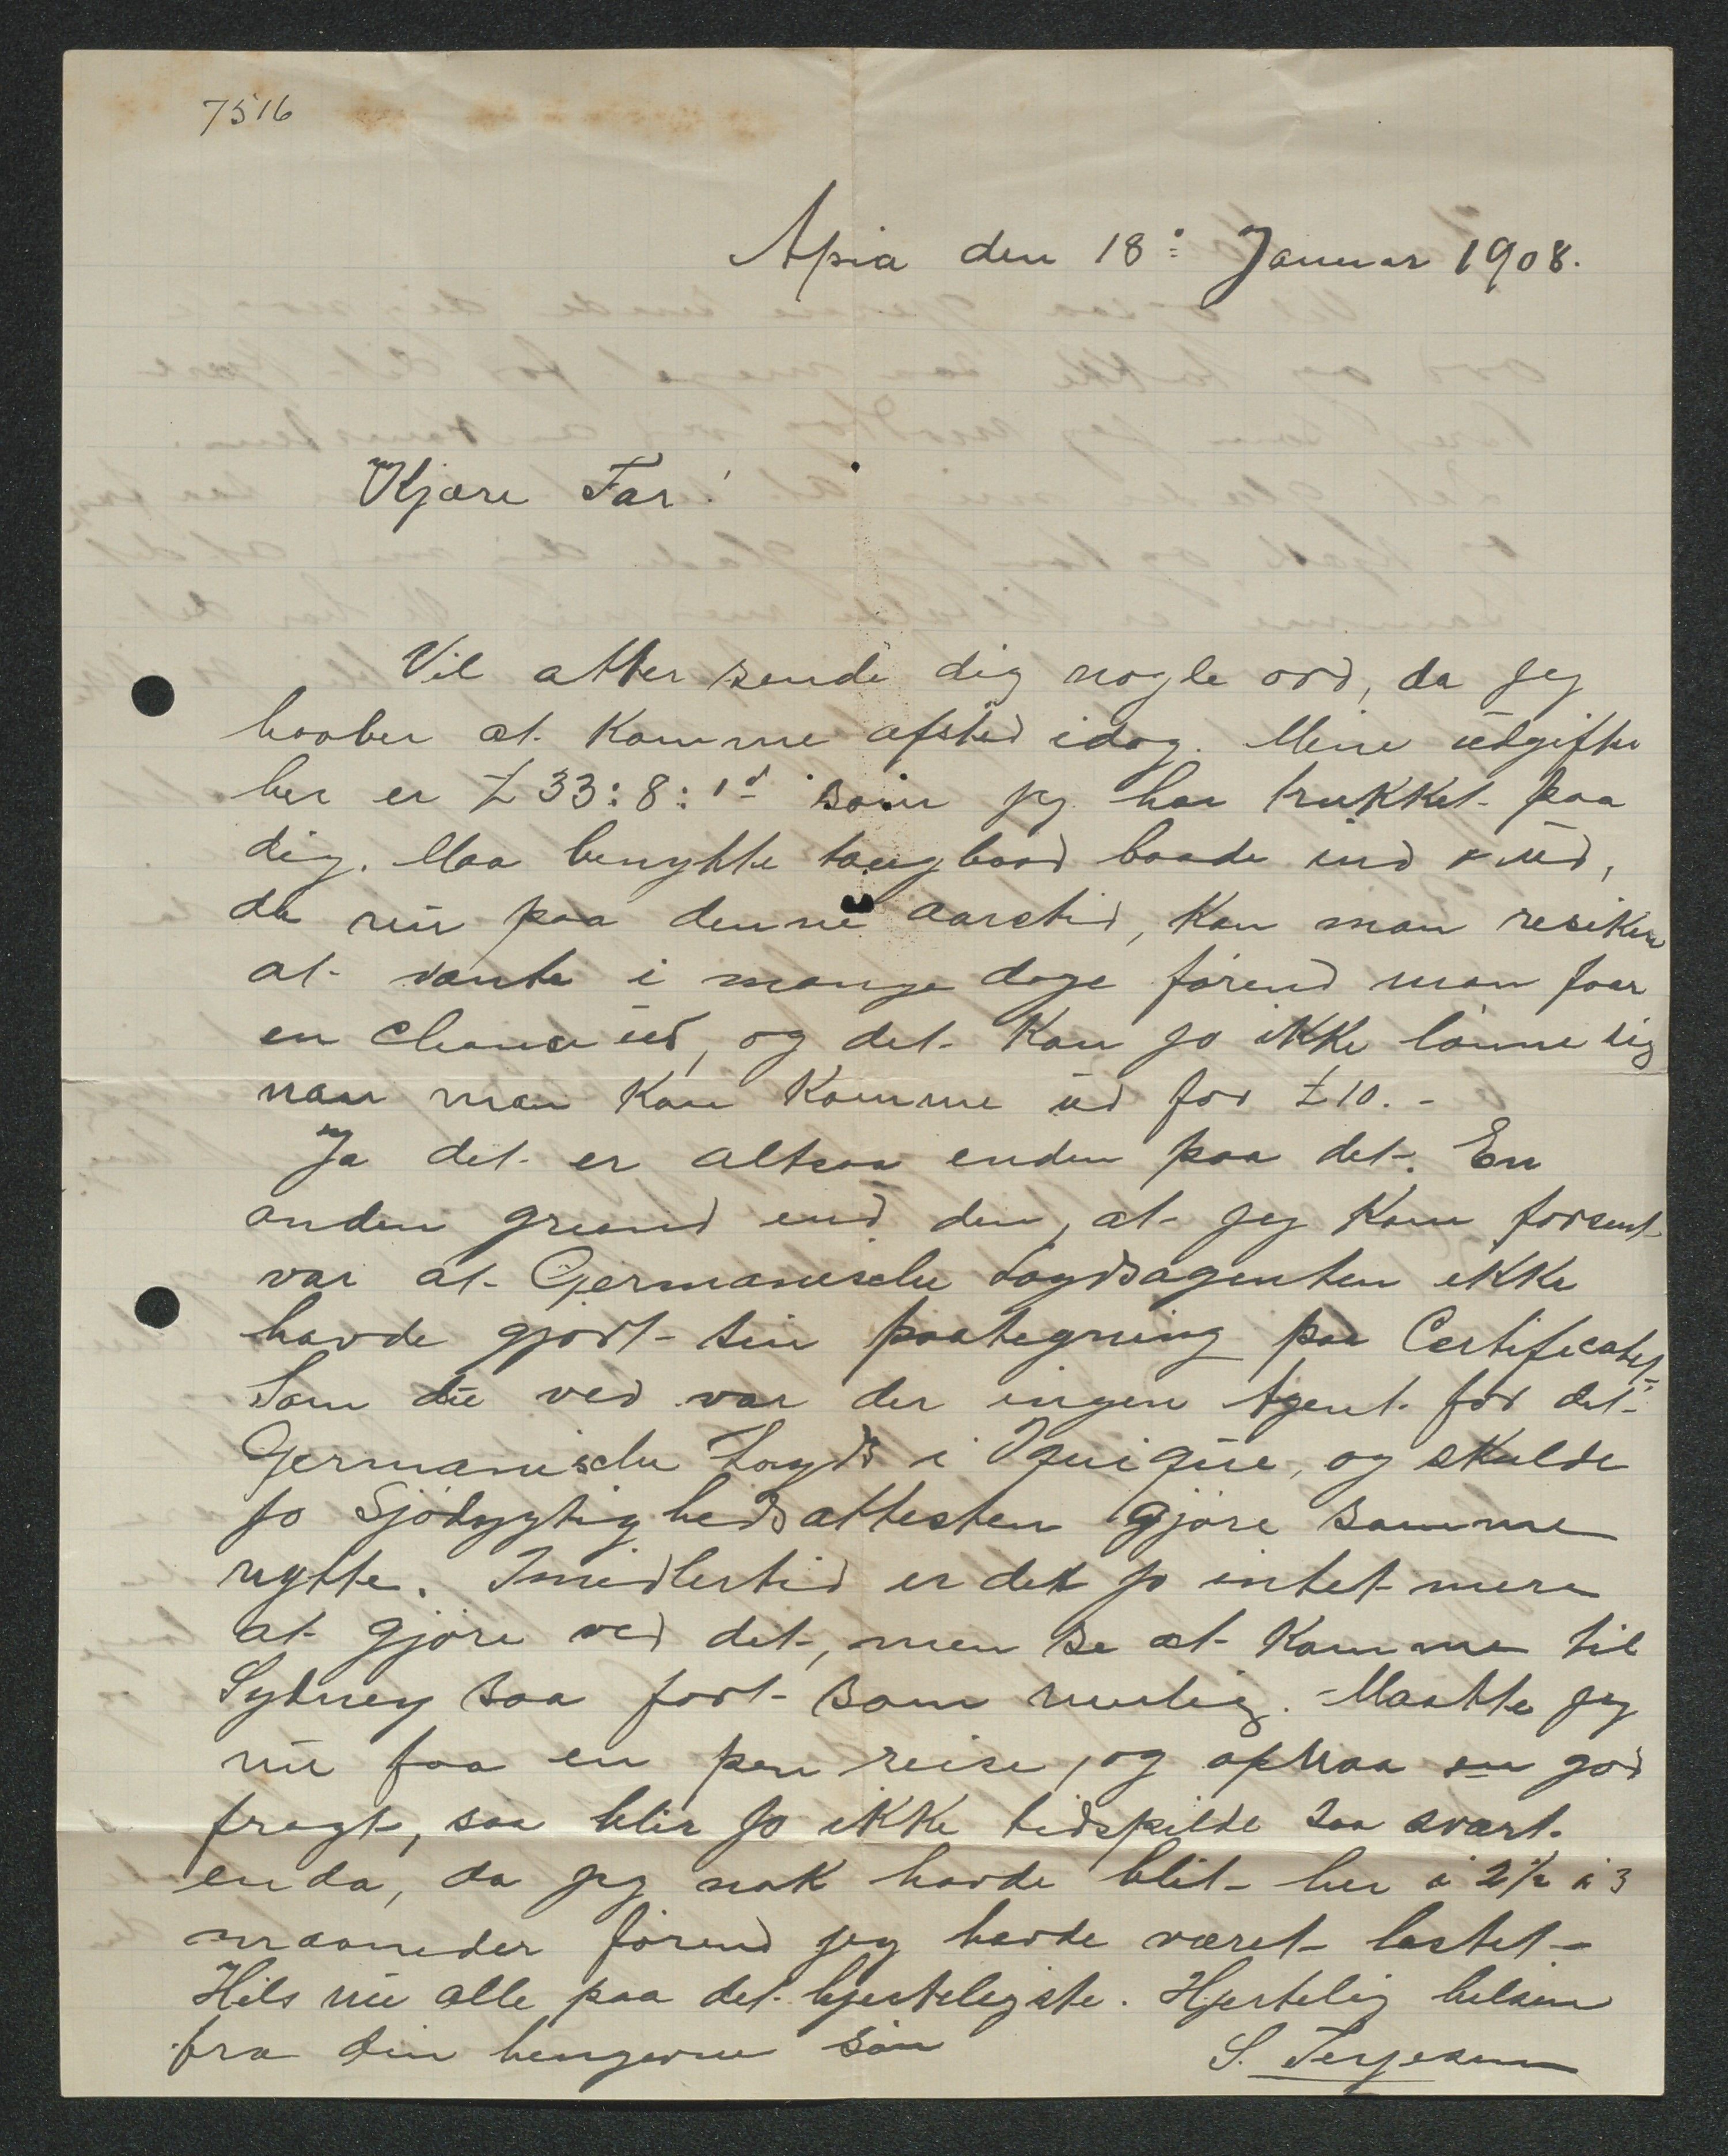 7516
Apia den 18: Januar 1908.
Kjære Far!
Vil atter sende dig nogle ord, da jeg
haaber at komme afsted idag. Mine udgifter
her er £ 33:8:1d som jeg har trukket paa
dig. Maa benytte taugbaad baade ind & ud,
da nu paa denne aarstid, kan man resikere
at vente i mange dage førend man faar
en chance ud, og det kan jo ikke lønne sig
naar man kan komme ud for £10.-
Ja det er altsaa enden paa det. En
anden grund end den, at jeg kom forsent
var at Germanische Loydsagenten ikke
havde gjort sin paategning paa Certificatet
Som du ved var der ingen Agent for det
Germanische Loyds i Iquique, og skulde
jo Sjødygtighedsattesten gjøre samme
nytte. Imidlertid er det jo intet mere
at gjøre ved det, men se at komme til
Sydney saa fort som mulig. Maatte jeg
nu faa en pen reise, og opnaa en god
fragt, saa blir jo ikke tidspilde saa svært
enda, da jeg nok havde blit her i 2½ à 3
maaneder førend jeg havde været lastet-
Hils nu alle paa det hjerteligste. Hjertelig hilsen
fra din hengivne søn
S. Terjesen